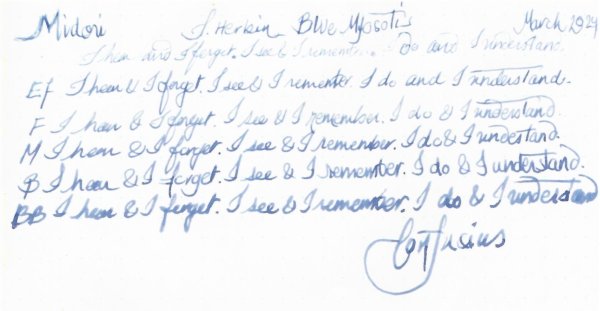 Midori J. Herbin Blue Myosotis March 2024
I hear and I forget. I see & I remember. I do and I understand.
EF I hear & I forget. I see & I remember. I do and I understand.
F I hear & I forget. I see & I remember. I do & I understand.
M I hear & I forget. I see & I remember. I do & I understand.
B I hear & I forget. I see & I remember. I do & I understand.
BB I hear & I forget. I see & I remember. I do & I understand
Confucius